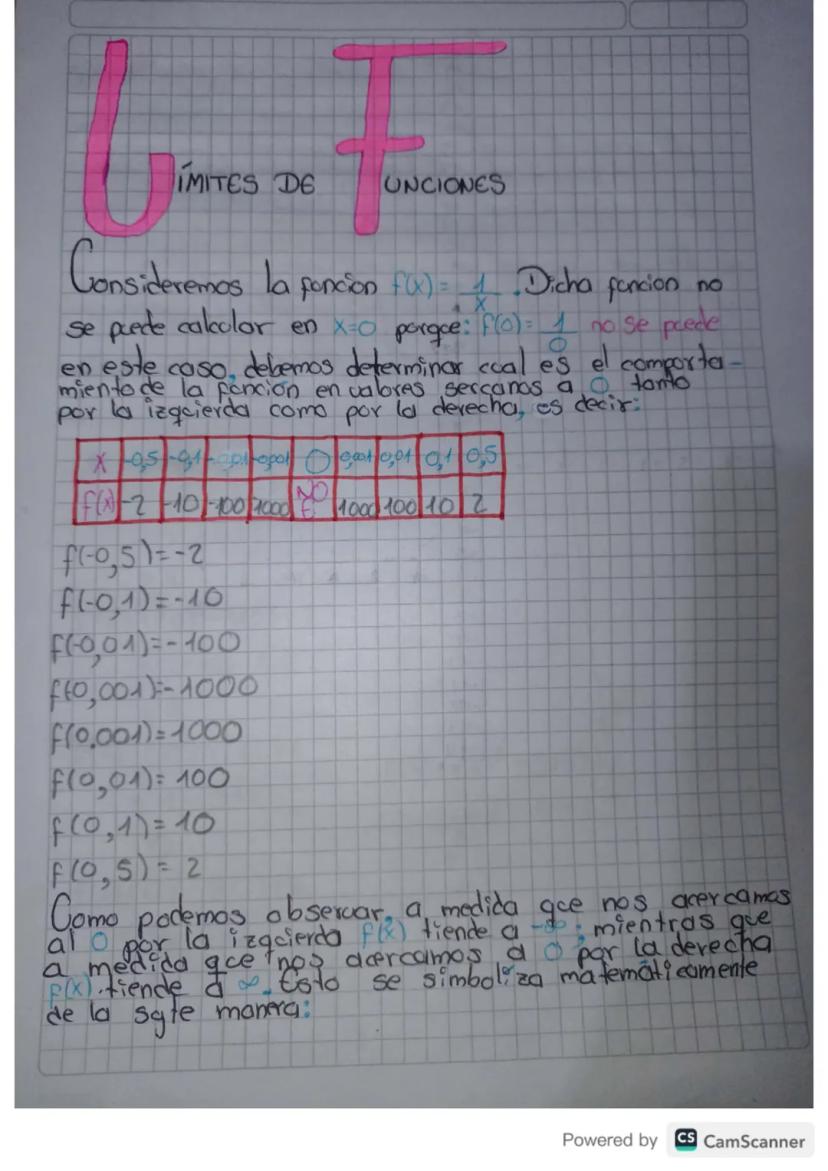 LÍMITES DE FUNCIONES
Consideremos la función f(x)= 1/x. Dicha función no
se puede calcular en x=0 porque: f(0)= 1/0 no se puede
en este caso, debemos determinar cual es el comporta-
miento de la función en valores sercanos a 0 tanto
por la izquierda como por la derecha, es decir:
x -0,5 -0,1 -0,01 -0,001 0 0,001 0,01 0,1 0,5
f(x) -2 -10 -100 -1000 NO E 1000 100 10 2
f(-0,5)=-2
f(-0,1)=-10
f(-0,01)=-100
f(-0,001)=-1000
f(0,001)=1000
f(0,01)=100
f(0,1)=10
f(0,5)=2
Como podemos observar, a medida que nos acercamos
al 0 por la izquierda f(x) tiende a -∞; mientras que
a medida que nos acercamos a 0 por la derecha
f(x). tiende a ∞. Esto se simboliza matemáticamente
de la sgte manera:
Powered by CS CamScanner